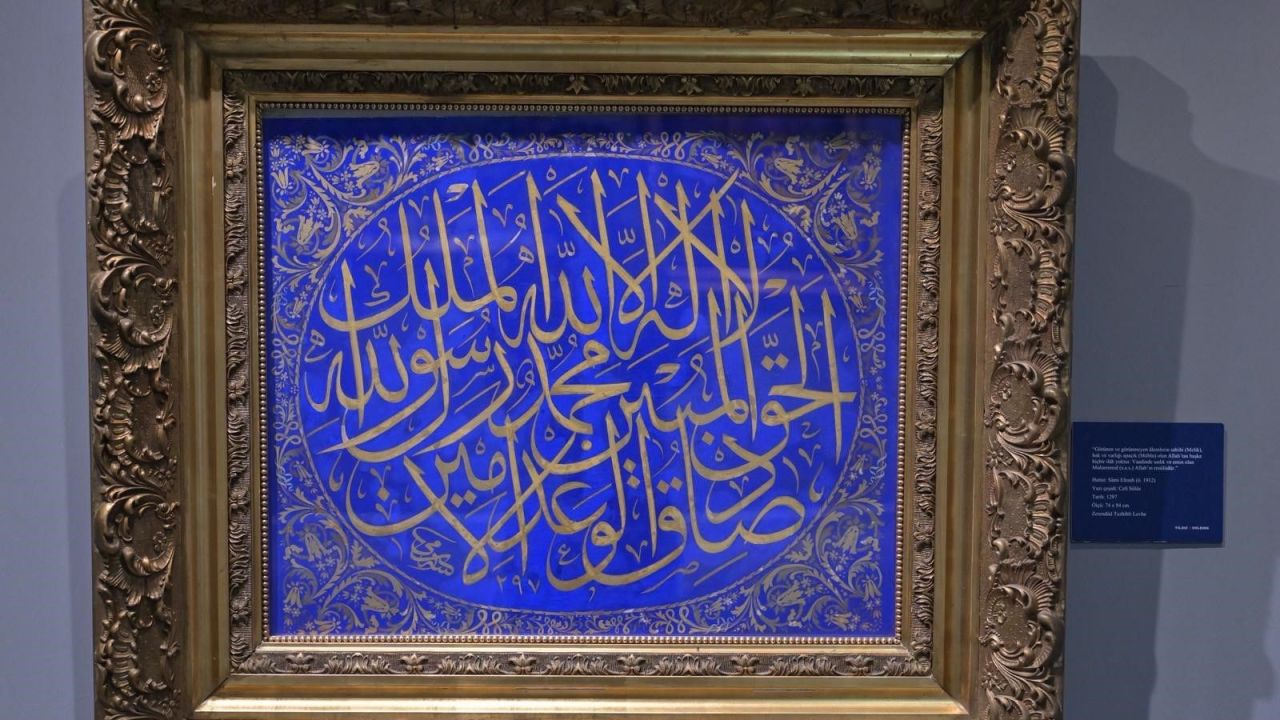 لا إله إلا الله الملك
الحق المبين محمد رسول الله
صادق الوعد الأمين
سامی
١٢٩٧
"Görünen ve görünmeyen âlemlerin sahibi (Melik),
hak ve varlığı apaçık (Mübîn) olan Allah'tan başka
hiçbir ilâh yoktur. Vaadinde sadık ve emin olan
Muhammed (s.a.s.) Allah'ın resûlüdür."
Hattat: Sâmi Efendi (ö. 1912)
Yazı çeşidi: Celî Sülüs
Tarih: 1297
Ölçü: 74 x 84 cm
Zerendûd Tezhibli Levha